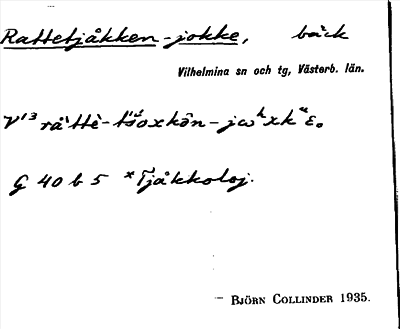 Rattetjåkken-jokke, bäck
Vilhelmina sn och tg, Västerb. län.
G 40 b 5 *Tjåkkoloj.
— BJÖRN COLLINDER 1935.